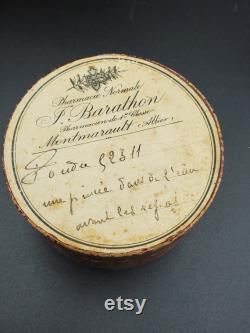 Pharmacie Normale
J. Barathon
Pharmacien de 1ère Classe
Montmarault (Allier)
Poudre 52311
une pincée dans de l'eau
avant les repas
etsy